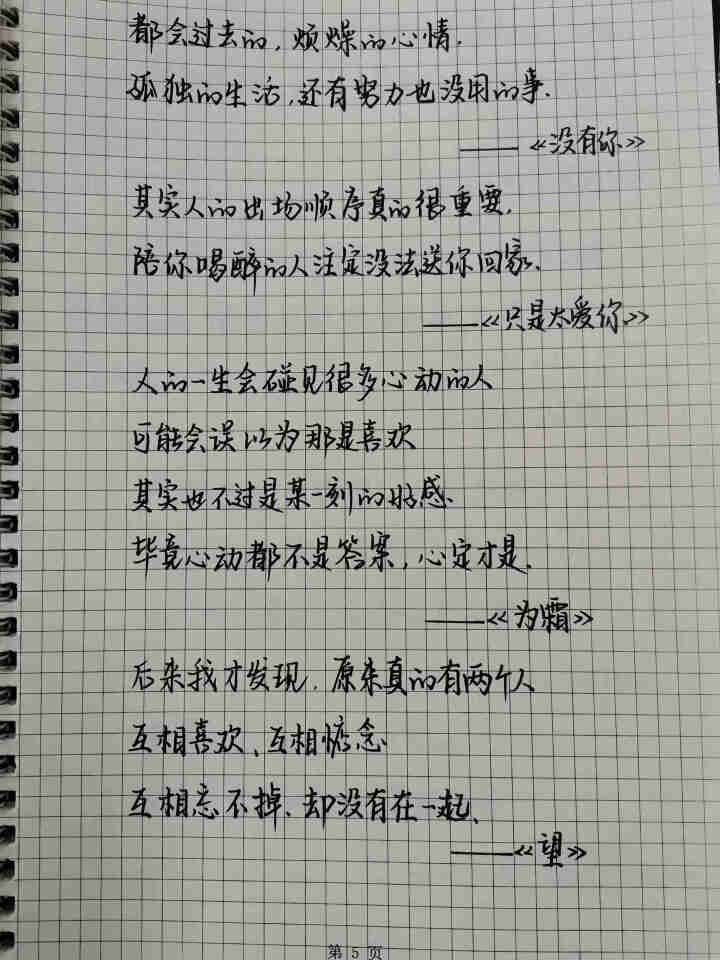 都会过去的,烦燥的心情.
孤独的生活,还有努力也没用的事.
——《没有你》
其实人的出场顺序真的很重要,
陪你喝醉的人注定没法送你回家、
——《只是太爱你》
人的一生会碰见很多心动的人
可能会误以为那是喜欢
其实也不过是某一刻的好感、
毕竟心动都不是答案,心定才是.
——《为霜》
后来我才发现.原来真的有两个人
互相喜欢、互相惦念
互相忘不掉.却没有在一起、
——《望》
第 5 页